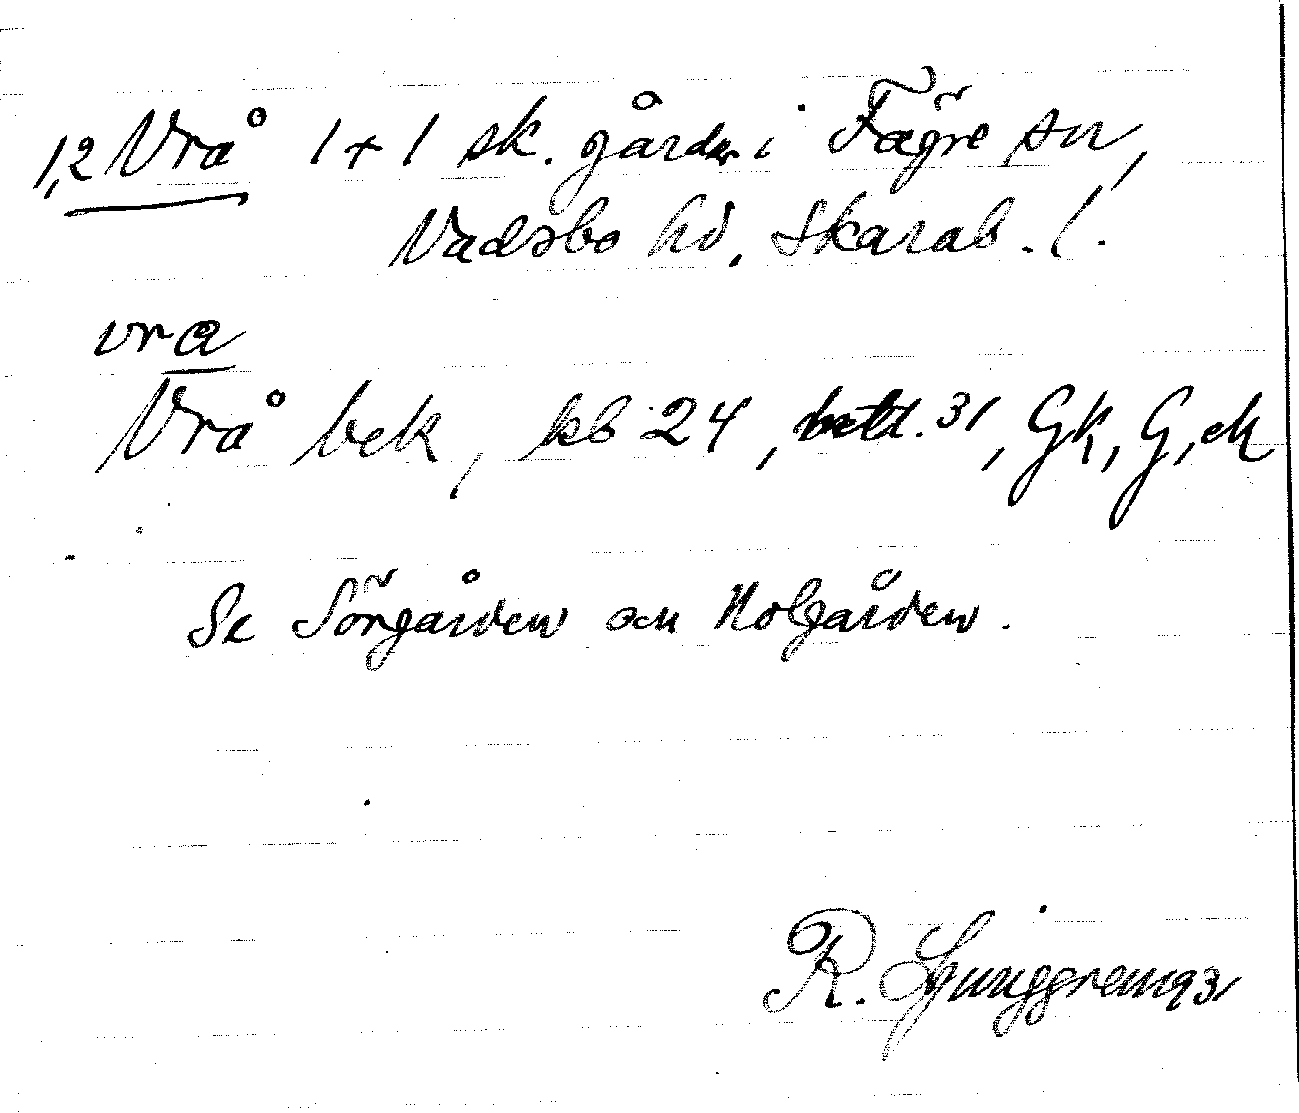 1,2 Vrå 1 + 1 sk. gårdar i Fägre sn,
Vadsbo hd, Skarab. l.
vra
Vrå bek, kb 24, betl. 31, Gk, G, ek
Se Sörgården och Nolgården.
R. Ljunggren 1931